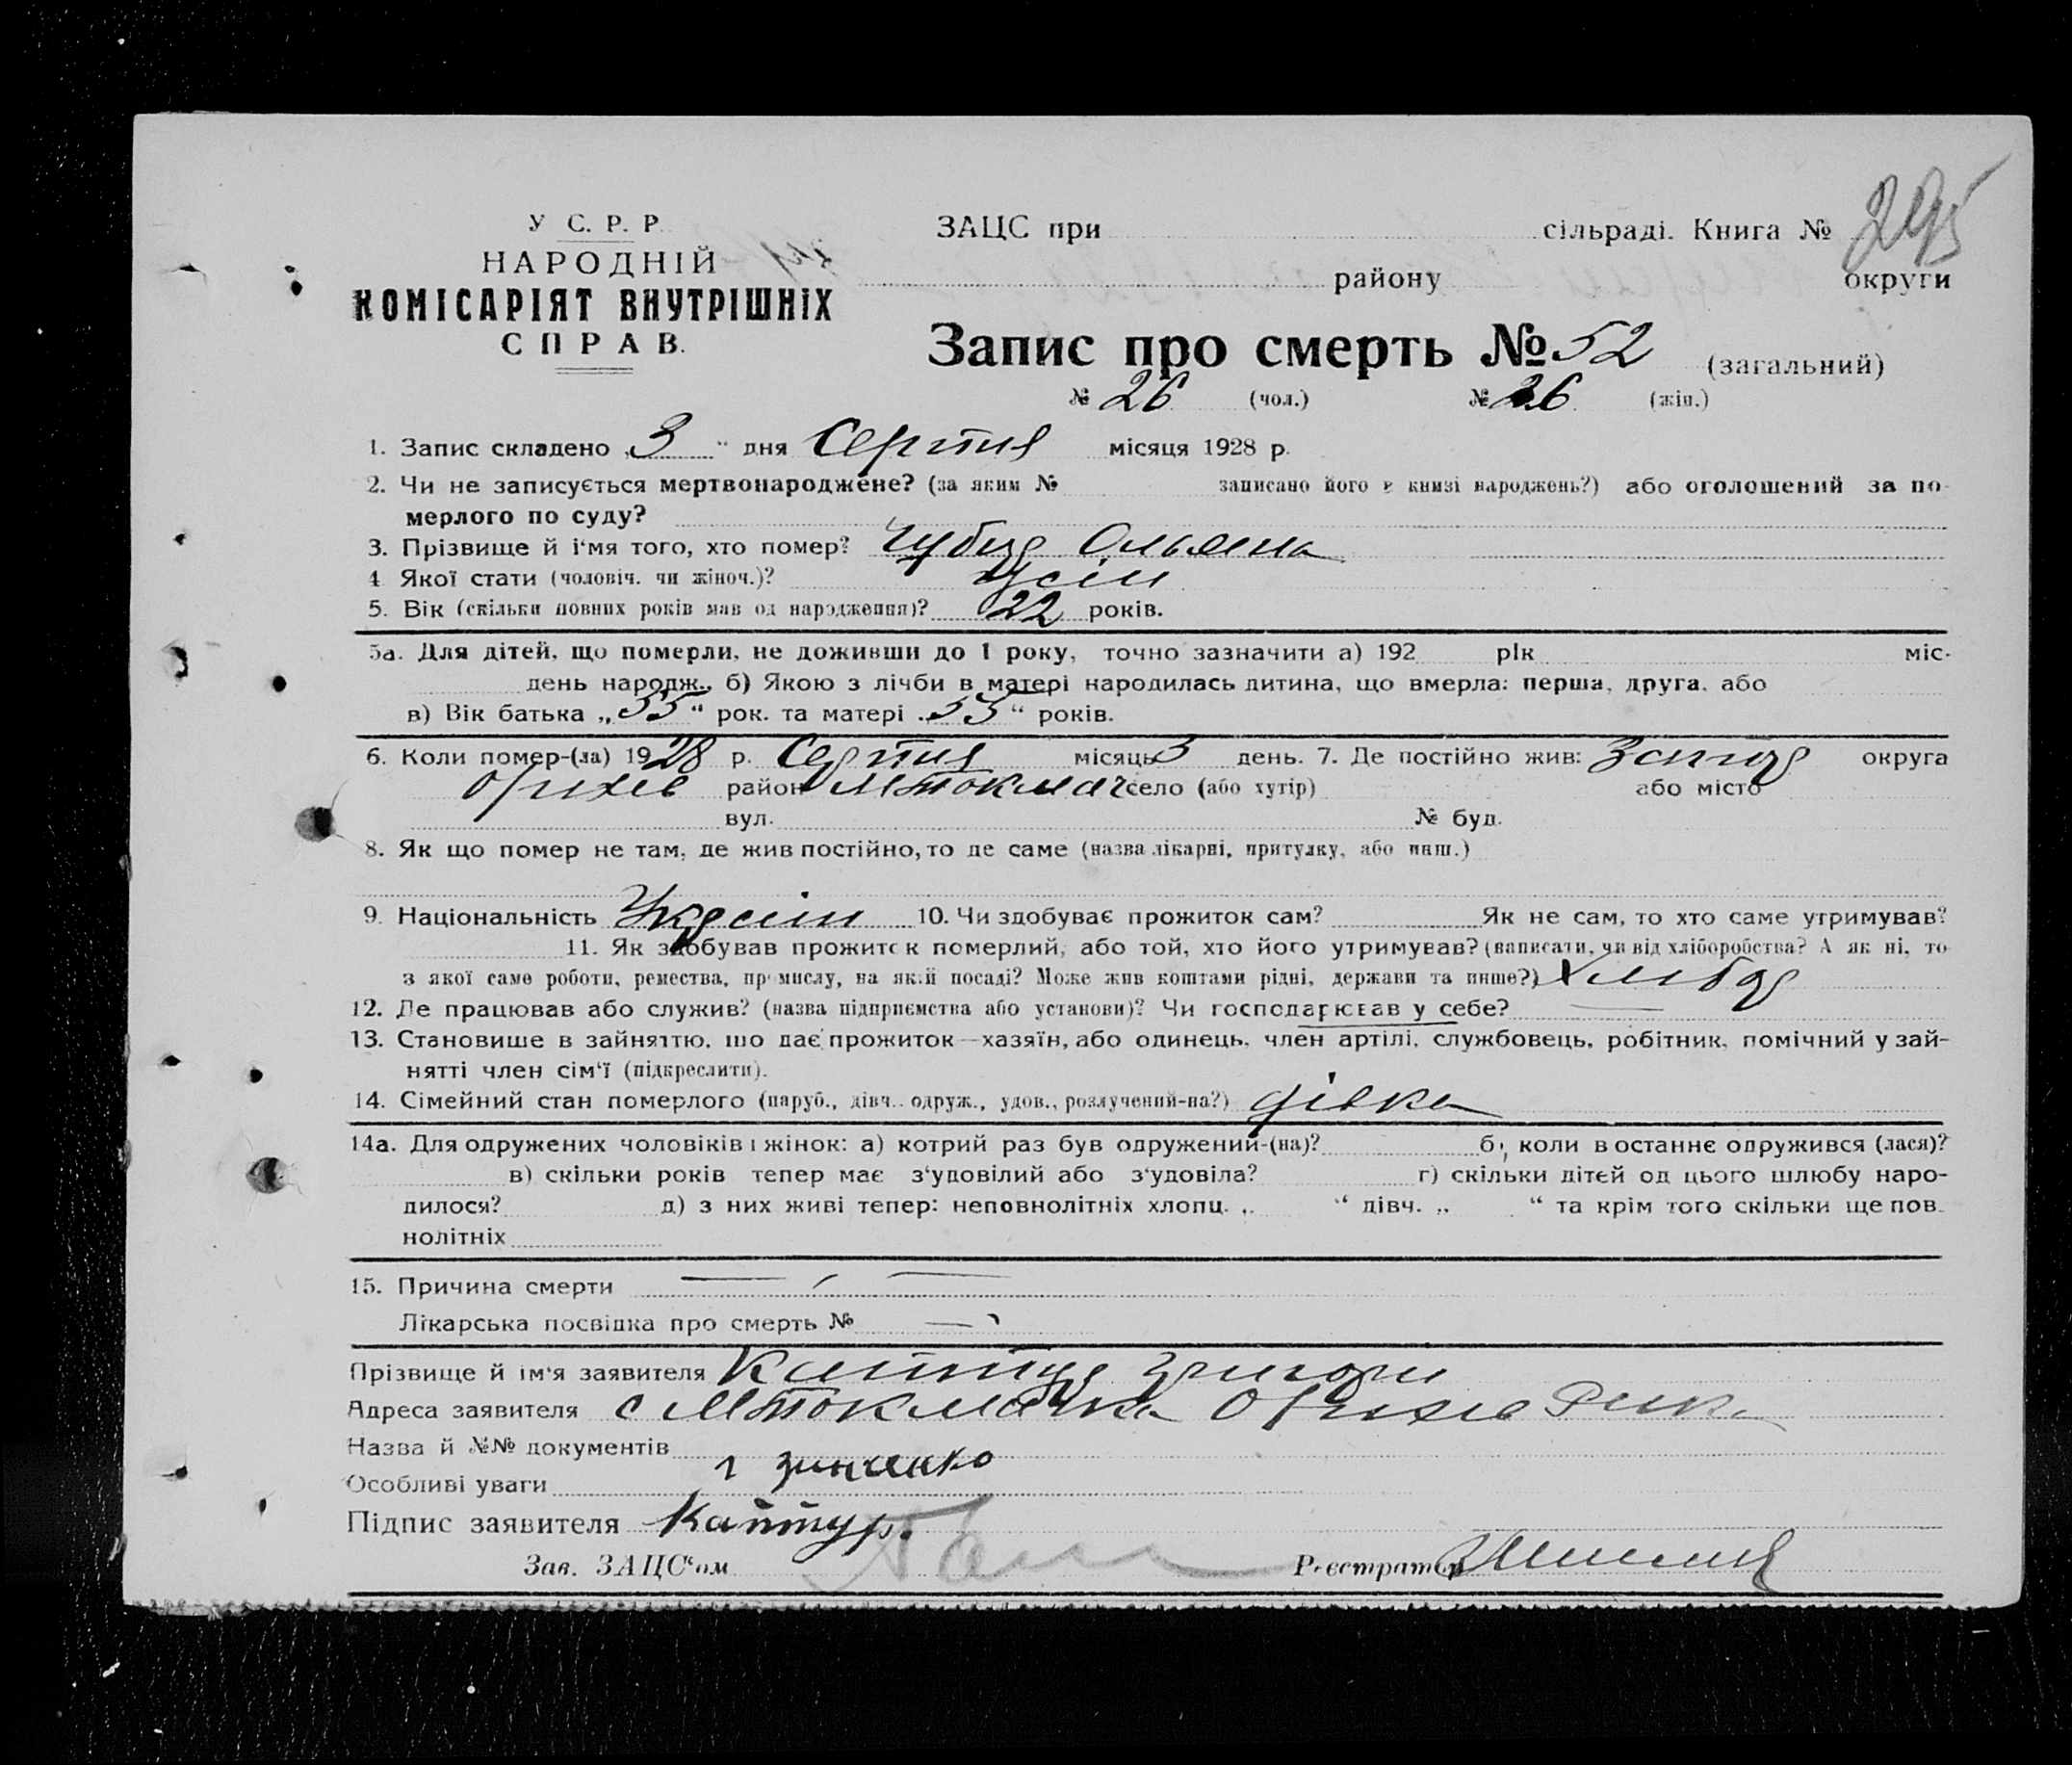 У С. Р. Р.
НАРОДНІЙ
КОМІСАРІЯТ ВНУТРІШНІХ
СПРАВ.
ЗАЦС при сільраді. Книга № 295
району округи
Запис про смерть № 52 (загальний)
№ 26 (чол.) № 26 (жін.)
1. Запис складено „3“ дня Серпня місяця 1928 р.
2. Чи не записується мертвонароджене? (за яким № записано його в книзі народжень?) або оголошений за по-
мерлого по суду?
3. Прізвище й і'мя того, хто помер?
4 Якої стати (чоловіч. чи жіноч.)?
5. Вік (скільки повних років мав од народження)? 22 років.
5а. Для дітей, що померли, не доживши до 1 року, точно зазначити а) 192 рік міс.
день народж., б) Якою з лічби в матері народилась дитина, що вмерла: перша, друга, або
в) Вік батька „55“ рок. та матері „53“ років.
6. Коли помер-(ла) 1928 р. Серпня місяць 3 день. 7. Де постійно жив: округа
Оріхів район М Токмач село (або хутір) або місто
вул. № буд.
8. Як що помер не там, де жив постійно, то де саме (назва лікарні, притулку, або инш.)
9. Національність 10. Чи здобуває прожиток сам? Як не сам, то хто саме утримував?
11. Як здобував прожиток померлий, або той, хто його утримував? (написати, чи від хліборобства? А як ні, то
з якої саме роботи, ремества, промислу, на якій посаді? Може жив коштами рідні, держави та инше?) Хлибор
12. Де працював або служив? (назва підприємства або установи)? Чи господарював у себе? —
13. Становище в зайняттю, що дає прожиток—хазяїн, або одинець, член артілі, службовець, робітник, помічний у зай-
нятті член сім'ї (підкреслити).
14. Сімейний стан померлого (паруб., дівч., одруж., удов., розлучений-на?) дівка
14а. Для одружених чоловіків і жінок: а) котрий раз був одружений-(на)? б) коли в останнє одружився (лася)?
в) скільки років тепер має з'удовілий або з'удовіла? г) скільки дітей од цього шлюбу наро-
дилося? д) з них живі тепер: неповнолітніх хлопц. „ “ дівч. „ “ та крім того скільки ще пов-
нолітніх
15. Причина смерти — , —
Лікарська посвідка про смерть № —
Прізвище й ім'я заявителя Каптур Григори
Адреса заявителя с М Токмачка Оріхів
Назва й №№ документів
Особливі уваги г зинченко
Підпис заявителя Каптур.
Зав. ЗАЦС'ом Реєстратор